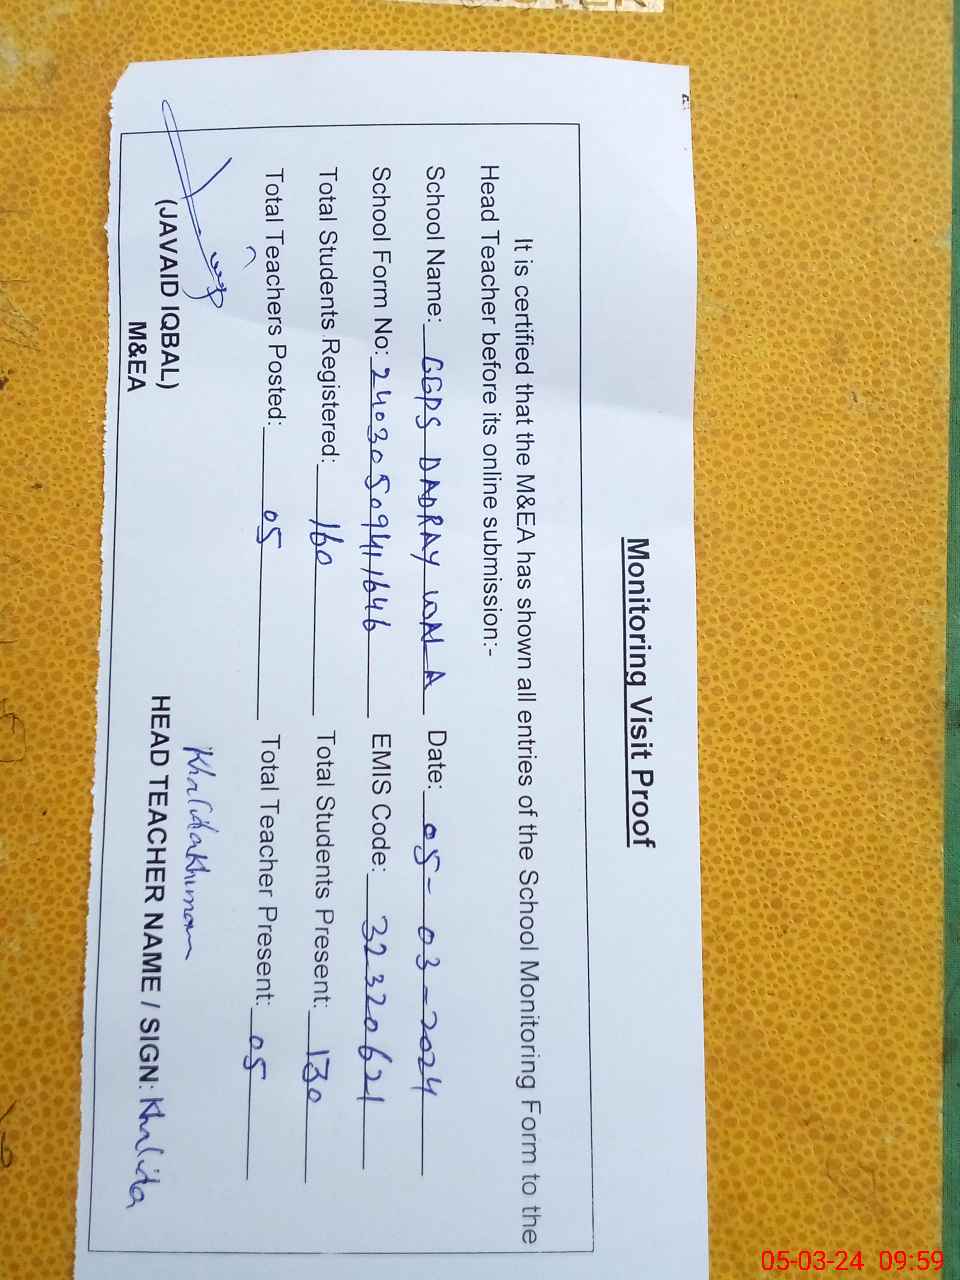 Monitoring Visit Proof
It is certified that the M&EA has shown all entries of the School Monitoring Form to the
Head Teacher before its online submission:-
School Name: GGPS DADRAY WALA Date: 05-03-2024
School Form No: 24030509411646 EMIS Code: 32320621
Total Students Registered: 160 Total Students Present: 130
Total Teachers Posted: 05 Total Teacher Present: 05
(JAVAID IQBAL)
M&EA
HEAD TEACHER NAME / SIGN: Khalida
05-03-24 09:59